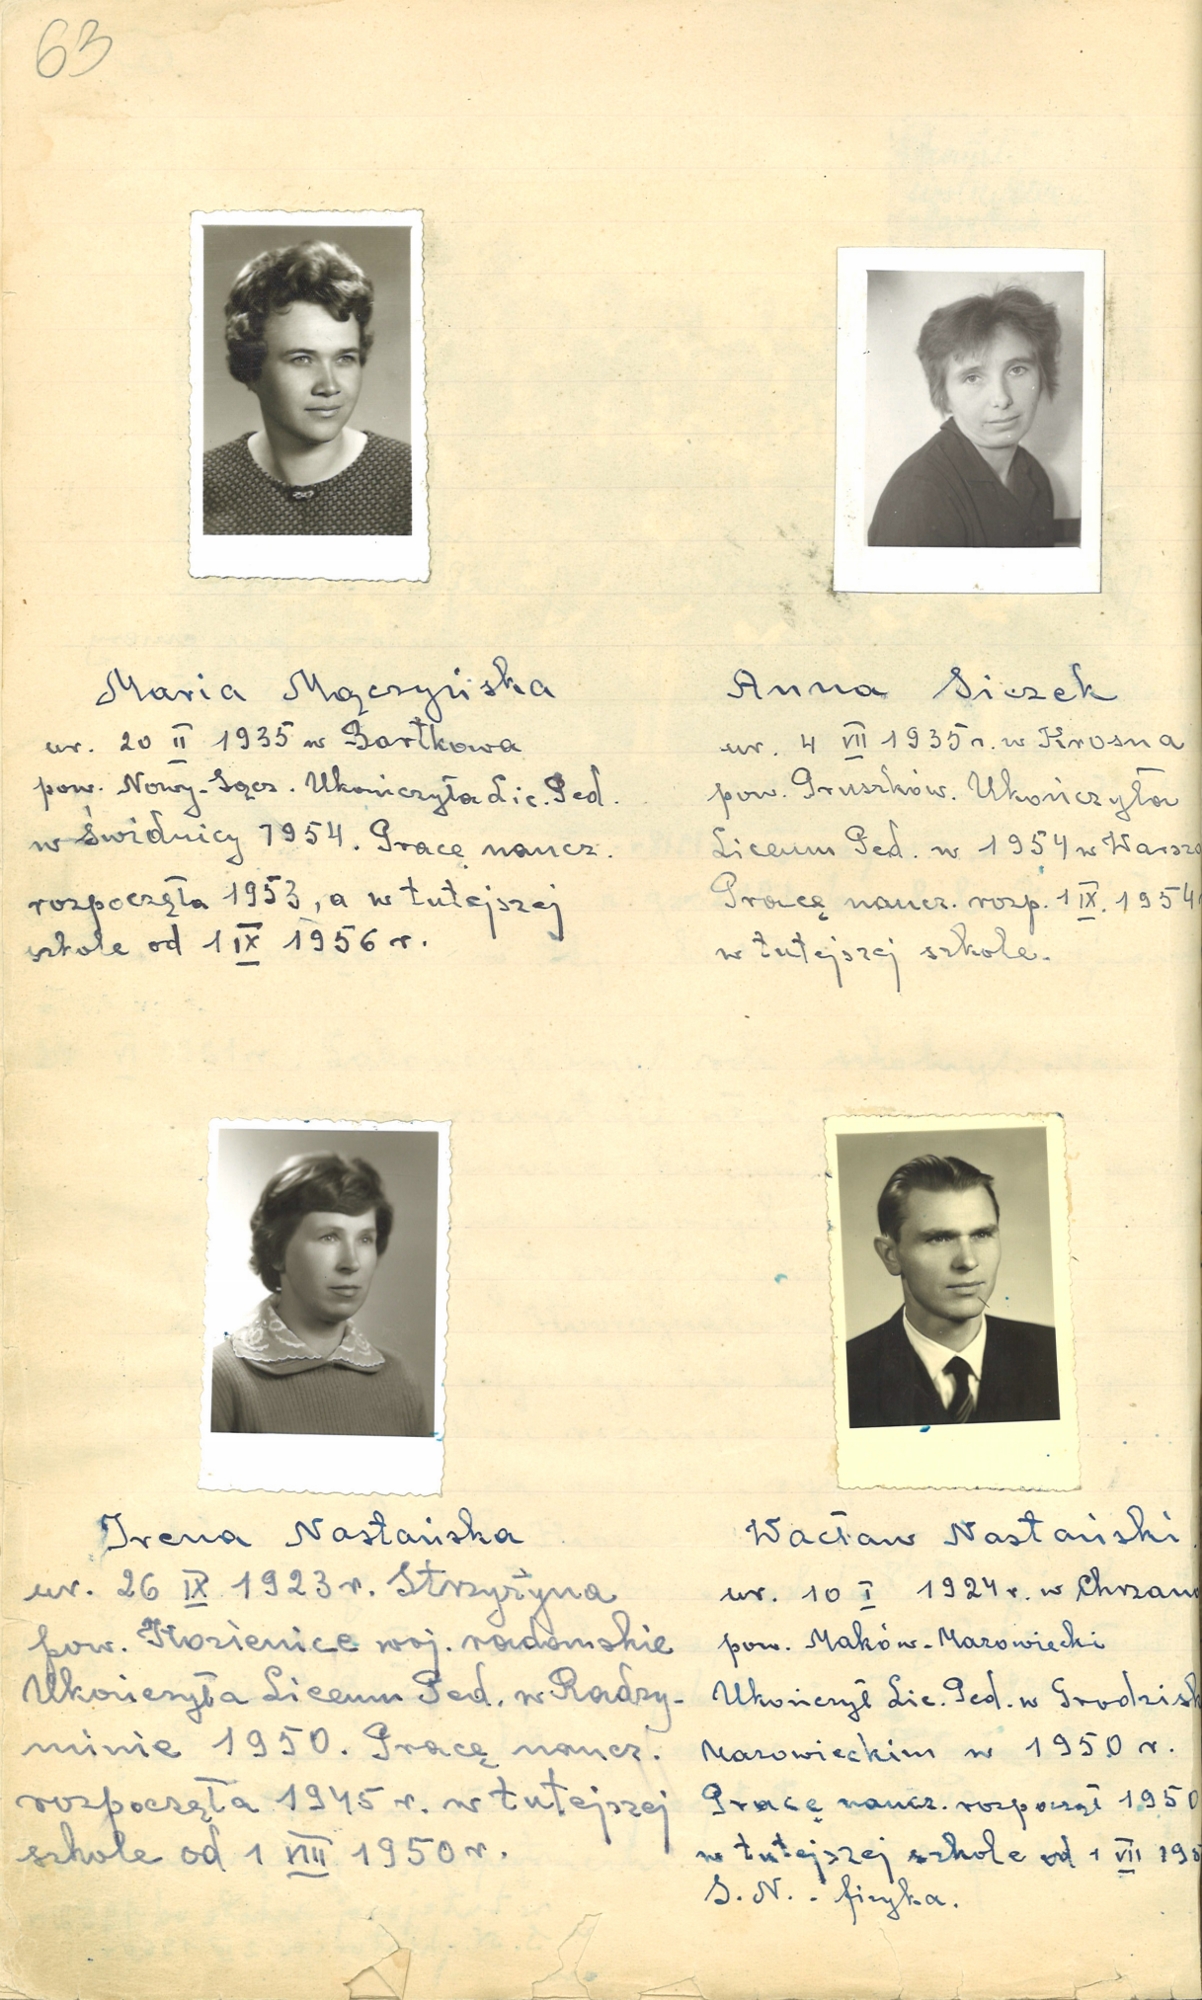 63
Maria Mączyńska
ur. 20 II 1935 w Bartkowa
pow. Nowy-Sącz. Ukończyła Lic. Ped.
w Świdnicy 1954. Pracę naucz.
rozpoczęła 1953, a w tutejszej
szkole od 1 IX 1956 r.
Anna Siczek
ur. 4 VII 1935 r. w Krosna
pow. Pruszków. Ukończyła
Liceum Ped. w 1954 w Warsza
Pracę naucz. rozp. 1 IX. 1954
w tutejszej szkole.
Irena Nastańska
ur. 26 IX 1923 r. Strzyżyna
pow. Kozienice woj. radomskie
Ukończyła Liceum Ped. w Radzy-
minie 1950. Pracę naucz.
rozpoczęła 1945 r. w tutejszej
szkole od 1 VIII 1950 r.
Wacław Nastański
ur. 10 I 1924 r. w Chrzano
pow. Maków-Mazowiecki
Ukończył Lic. Ped. w Grodzisk
Mazowieckim w 1950 r.
Pracę naucz. rozpoczął 1950
w tutejszej szkole od 1 VII 195
S. N. - fizyka.